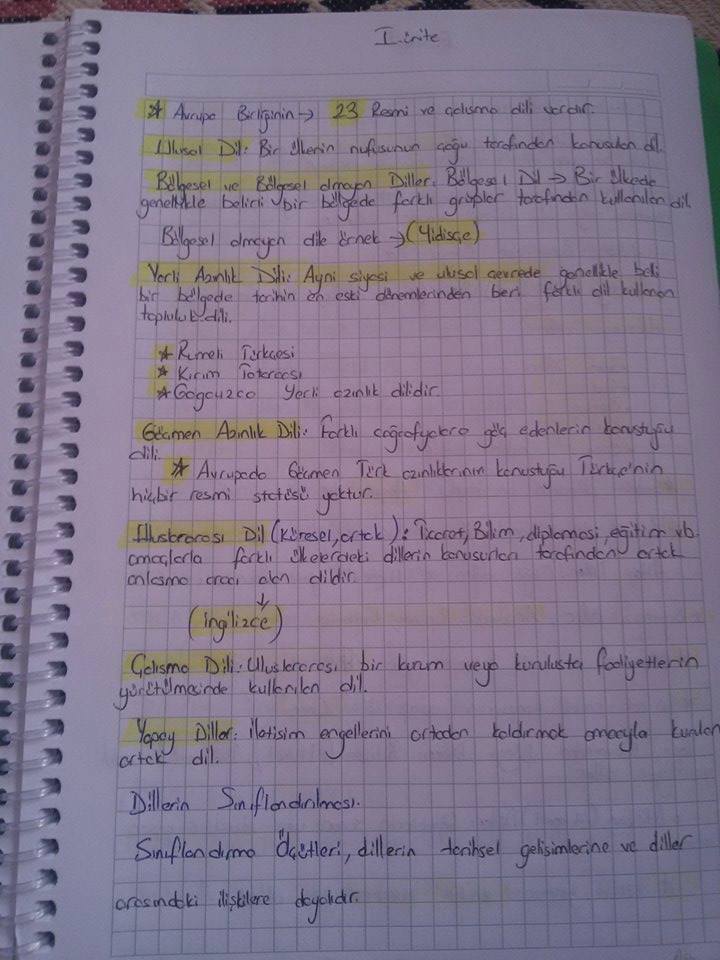 I. ünite
* Avrupa Birliğinin → 23 Resmi ve çalışma dili vardır.
Ulusal Dil: Bir ülkenin nüfusunun çoğu tarafından konuşulan dil.
Bölgesel ve Bölgesel olmayan Diller: Bölgesel Dil → Bir ülkede
genellikle belirli bir bölgede farklı gruplar tarafından kullanılan dil
Bölgesel olmayan dile örnek → (Yidişçe)
Yerli Azınlık Dili: Aynı siyasi ve ulusal çevrede genellikle beli
bir bölgede tarihin en eski dönemlerinden beri farklı dil kullanan
topluluk dili.
* Rumeli Türkçesi
* Kırım Tatarcası
* Gagauzca Yerli azınlık dilidir.
Göçmen Azınlık Dili: Farklı coğrafyalara göç edenlerin konuştuğu
dili.
* Avrupada Göçmen Türk azınlıklarının konuştuğu Türkçe'nin
hiçbir resmi statüsü yoktur.
Uluslararası Dil (Küresel, ortak): Ticaret, Bilim, diplomasi, eğitim vb.
amaçlarla farklı ülkelerdeki dillerin konuşurları tarafından ortak
anlaşma aracı olan dildir.
↓
(ingilizce)
Çalışma Dili: Uluslararası bir kurum veya kuruluşta faaliyetlerin
yürütülmesinde kullanılan dil.
Yapay Diller: İletişim engellerini ortadan kaldırmak amacıyla kurulan
ortak dil.
Dillerin Sınıflandırılması.
Sınıflandırma Ölçütleri, dillerin tarihsel gelişimlerine ve diller
arasındaki ilişkilere dayalıdır.